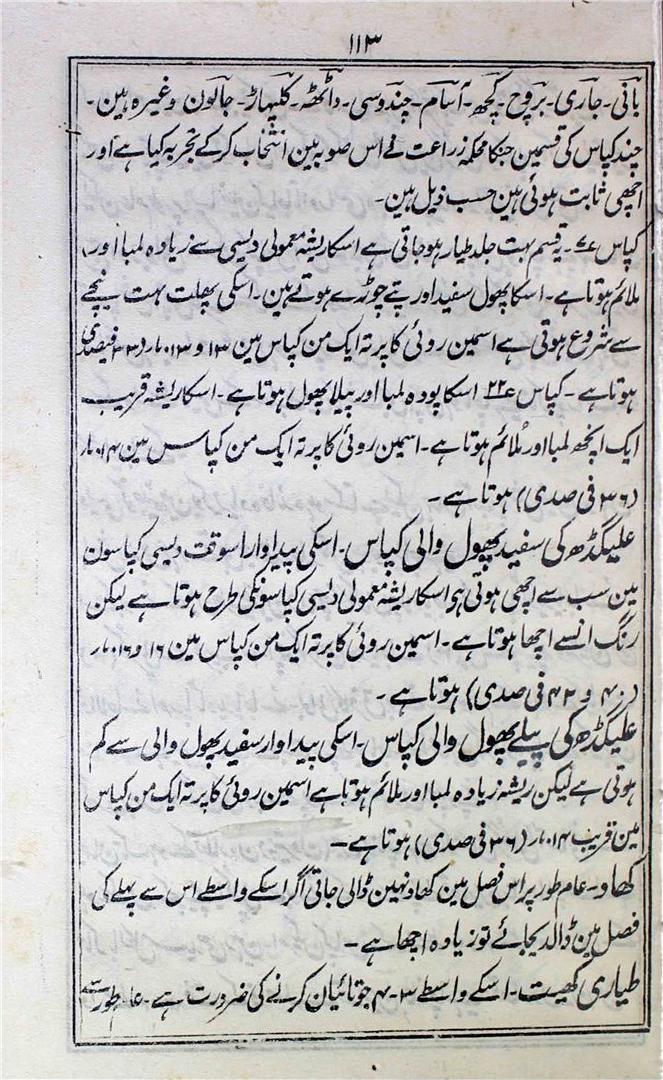 ۱۱۳
بانی۔ جاری۔ بروچ۔ کچھ۔ آسام۔ چندوسی۔ ڈاٹھٹہ۔ کلہاڑ۔ جالون وغیرہ ہین۔
چند کپاس کی قسمین جنکا محکمہ زراعت نے اس صوبہ مین انتخاب کر کے تجربہ کیا ہے اور
اچھی ثابت ہوئی ہین حسب ذیل ہین۔
کپاس ۔ یہ قسم بہت جلد طیار ہو جاتی ہے اسکا ریشہ معمولی دیسی سے زیادہ لمبا اور
ملائم ہوتا ہے۔ اسکا پھول سفید اور پتے چوڑے ہوتے ہین۔ اسکی پھلت بہت نیچے
سے شروع ہوتی ہے اسمین روئی کا پرتہ ایک من کپاس مین ۱۳ و ۱۳۰ار (۳۳ فیصدی
ہوتا ہے۔ کپاس ۲۲ اسکا پودہ لمبا اور پیلا پھول ہوتا ہے۔ اسکا ریشہ قریب
ایک انچھ لمبا اور مُلائم ہوتا ہے۔ اسمین روئی کا پرتہ ایک من کپاس مین ۱۴۰ار
(۳۶ فی صدی) ہوتا ہے۔
علیگڈھ کی سفید پھول والی کپاس۔ اسکی پیداوار اسوقت دیسی کپاسون
مین سب سے اچھی ہوتی ہی اسکا ریشہ معمولی دیسی کپاسونکی طرح ہوتا ہے لیکن
رنگ انسے اچھا ہوتا ہے۔ اسمین روئی کا پرتہ ایک من کپاس مین ۱۶ و ۱۶۰ار
(۴۰ و ۴۲ فی صدی) ہوتا ہے۔
علیگڈھ کی پیلے پھول والی کپاس۔ اسکی پیداوار سفید پھول والی سے کم
ہوتی ہے لیکن ریشہ زیادہ لمبا اور ملائم ہوتا ہے اسمین روئی کا پرتہ ایک من کپاس
مین قریب ۱۴۰ار (۳۶ فی صدی) ہوتا ہے۔
کھاد۔ عام طور پر اس فصل مین کھاد نہین ڈالی جاتی اگر اسکے واسطے اس سے پہلے کی
فصل مین ڈالدیجائے تو زیادہ اچھا ہے۔
طیاری کھیت۔ اسکے واسطے ۳۔۴ جوتائیان کرنے کی ضرورت ہے۔ عام طور سے